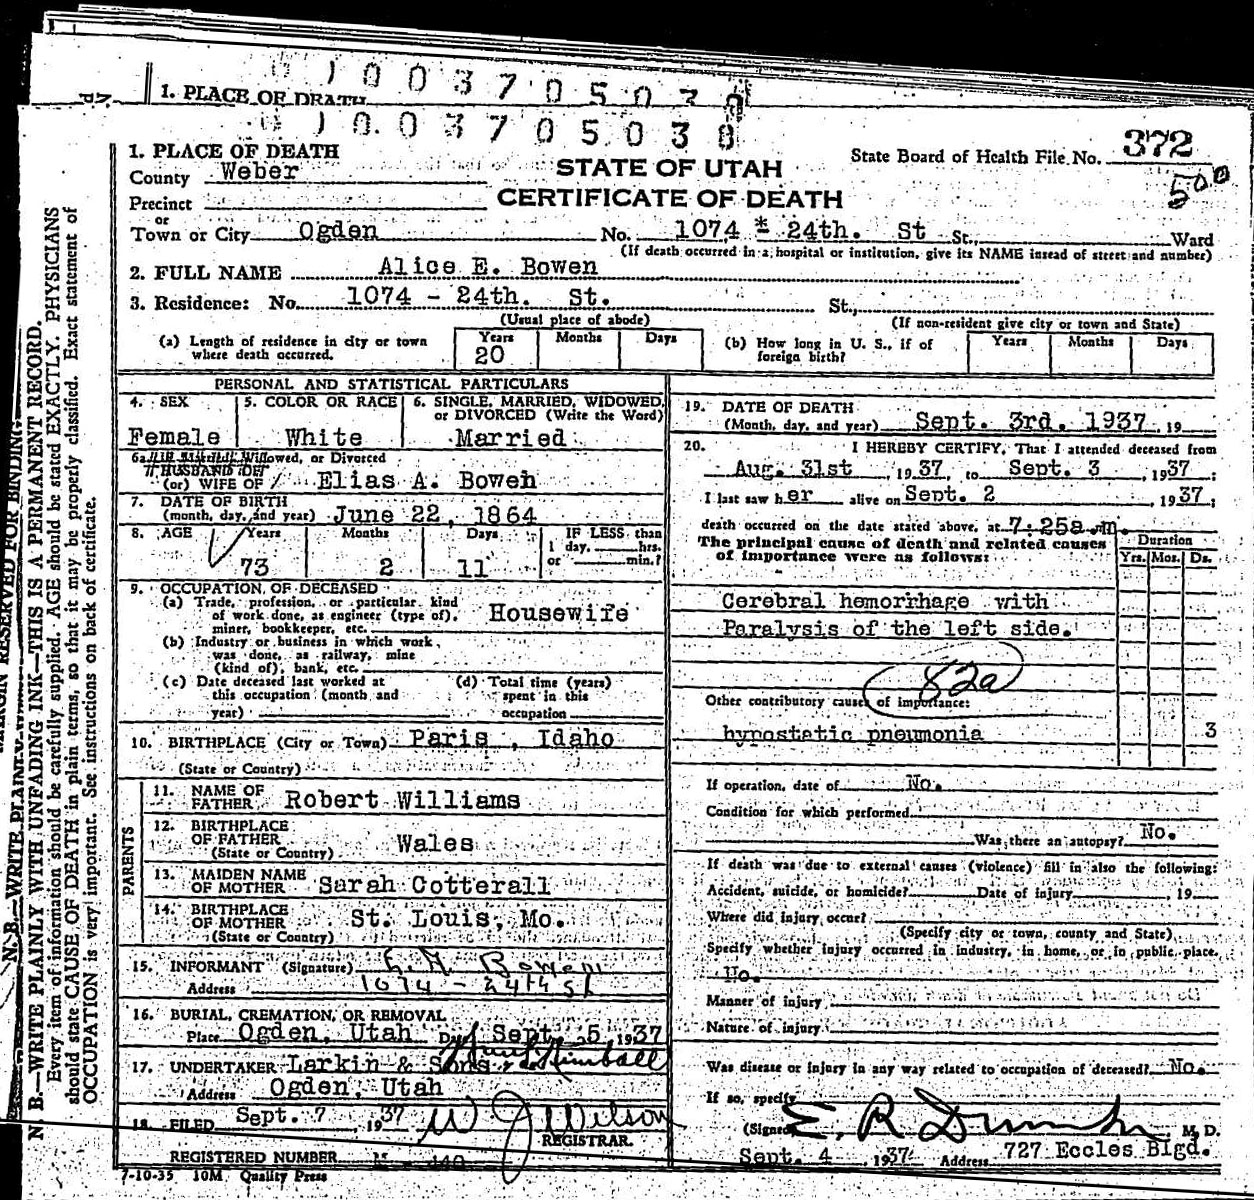 1. PLACE OF DEATH
0 0 3 7 0 5 0 3
0 0 3 7 0 5 0 3 8
1. PLACE OF DEATH
County Weber
STATE OF UTAH
CERTIFICATE OF DEATH
State Board of Health File No. 372
500
Precinct
or
Town or City Ogden No. 1074 - 24th. St St., Ward
(If death occurred in a hospital or institution, give its NAME instead of street and number)
2. FULL NAME Alice E. Bowen
3. Residence: No. 1074 - 24th. St. St.,
(Usual place of abode) (If non-resident give city or town and State)
(a) Length of residence in city or town where death occurred. Years 20 Months Days
(b) How long in U. S., if of foreign birth? Years Months Days
PERSONAL AND STATISTICAL PARTICULARS
4. SEX Female
5. COLOR OR RACE White
6. SINGLE, MARRIED, WIDOWED, or DIVORCED (Write the Word) Married
6a. Widowed, or Divorced
HUSBAND OF
(or) WIFE OF Elias A. Bowen
7. DATE OF BIRTH
(month, day, and year) June 22, 1864
8. AGE Years 73 Months 2 Days 11 IF LESS than 1 day, hrs. or min.?
9. OCCUPATION OF DECEASED
(a) Trade, profession, or particular kind of work done, as engineer (type of), miner, bookkeeper, etc. Housewife
(b) Industry or business in which work was done, as railway, mine (kind of), bank, etc.
(c) Date deceased last worked at this occupation (month and year)
(d) Total time (years) spent in this occupation
10. BIRTHPLACE (City or Town) Paris, Idaho
(State or Country)
PARENTS
11. NAME OF FATHER Robert Williams
12. BIRTHPLACE OF FATHER (State or Country) Wales
13. MAIDEN NAME OF MOTHER Sarah Cotterall
14. BIRTHPLACE OF MOTHER (State or Country) St. Louis, Mo.
15. INFORMANT (Signature) Bowen
Address 1074 - 24th St
16. BURIAL, CREMATION, OR REMOVAL
Place Ogden, Utah Sept. 5, 1937
17. UNDERTAKER Larkin & Sons Kimball
Address Ogden, Utah
18. FILED Sept. 7, 1937 W J Wilson
REGISTRAR.
REGISTERED NUMBER
7-10-35 10M Quality Press
19. DATE OF DEATH
(Month, day, and year) Sept. 3rd. 1937, 19
20. I HEREBY CERTIFY, That I attended deceased from
Aug. 31st, 1937, to Sept. 3, 1937;
I last saw her alive on Sept. 2, 1937;
death occurred on the date stated above, at 7:25a.m.
The principal cause of death and related causes of importance were as follows:
Duration
Yrs. Mos. Ds.
Cerebral hemorrhage with
Paralysis of the left side.
82a
Other contributory causes of importance:
hypostatic pneumonia 3
If operation, date of No.
Condition for which performed
Was there an autopsy? No.
If death was due to external causes (violence) fill in also the following:
Accident, suicide, or homicide? Date of injury, 19
Where did injury occur?
(Specify city or town, county and State)
Specify whether injury occurred in industry, in home, or in public place.
No.
Manner of injury
Nature of injury
Was disease or injury in any way related to occupation of deceased? No.
If so, specify
(Signed) E. R. M. D.
Sept. 4, 1937 Address 727 Eccles Blgd.
MARGIN RESERVED FOR BINDING
N. B.—WRITE PLAINLY WITH UNFADING INK—THIS IS A PERMANENT RECORD.
Every item of information should be carefully supplied. AGE should be stated EXACTLY. PHYSICIANS
should state CAUSE OF DEATH in plain terms, so that it may be properly classified. Exact statement of
OCCUPATION is very important. See instructions on back of certificate.